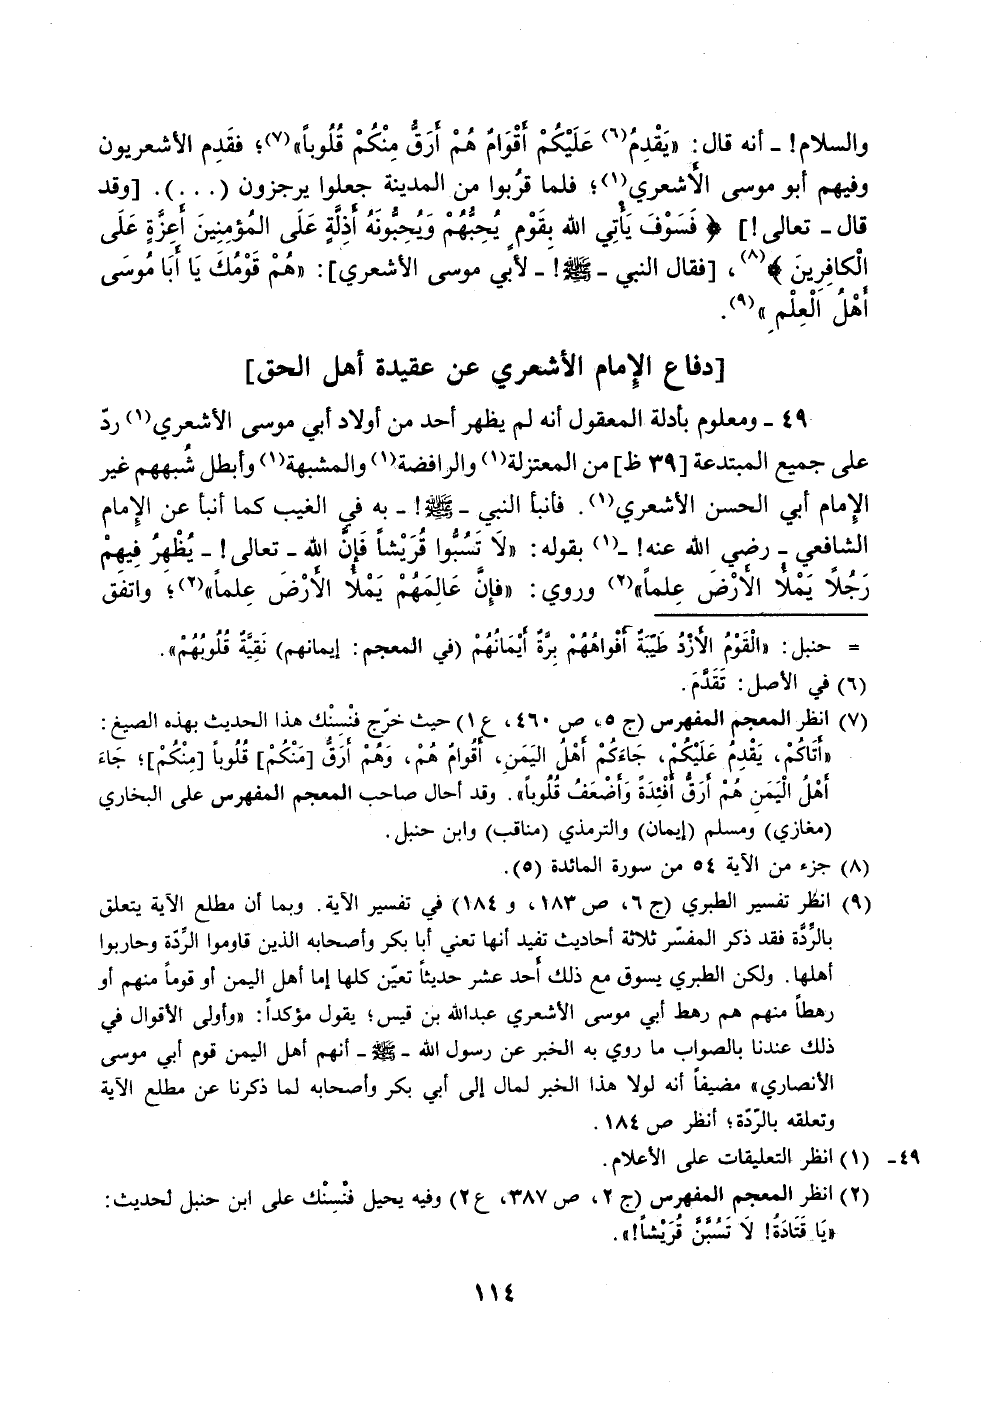 والسلام! ـ أنه قال: «يَقْدِمُ(٦) عَلَيْكُمْ أَقْوَامٌ هُمْ أَرَقُّ مِنْكُمْ قُلُوباً»(٧)؛ فقَدِم الأشعريون
وفيهم أبو موسى الأشعري(١)؛ فلما قرُبوا من المدينة جعلوا يرجزون (...). [وقد
قال ـ تعالى!] ﴿ فَسَوْفَ يَأْتِي الله بِقَوْمٍ يُحِبُّهُمْ وَيُحِبُّونَهُ أَذِلَّةٍ عَلَى المُؤْمِنِينَ أَعِزَّةٍ عَلَى
الْكافِرِينَ ﴾(٨)، [فقال النبي ـ ﷺ! ـ لأبي موسى الأشعري]: «هُمْ قَوْمُكَ يَا أَبَا مُوسَى
أَهْلُ الْعِلْمِ»(٩).
[دفاع الإمام الأشعري عن عقيدة أهل الحق]
٤٩ ـ ومعلوم بأدلة المعقول أنه لم يظهر أحد من أولاد أبي موسى الأشعري(١) ردّ
على جميع المبتدعة [٣٩ ظ] من المعتزلة(١) والرافضة(١) والمشبهة(١) وأبطل شُبههم غير
الإمام أبي الحسن الأشعري(١). فأنبأ النبي ـ ﷺ! ـ به في الغيب كما أنبأ عن الإمام
الشافعي ـ رضي الله عنه! ـ(١) بقوله: «لَا تَسُبُّوا قُرَيْشاً فَإِنَّ الله ـ تعالى! ـ يُظْهِرُ فِيهِمْ
رَجُلاً يَمْلأُ الأَرْضَ عِلماً»(٢) وروي: «فإِنَّ عَالِمَهُمْ يَمْلأُ الأَرْضَ عِلماً»(٢)؛ واتفق
= حنبل: «الْقَوْمُ الأَزْدُ طَيِّبَةٌ أَفْوَاهُهُمْ بِرَّةٌ أَيْمَانُهُمْ (في المعجم: إيمانهم) نَقِيَّةٌ قُلُوبُهُمْ».
(٦) في الأصل: تَقَدَّمَ.
(٧) انظر المعجم المفهرس (ج ٥، ص ٤٦٠، ع ١) حيث خرّج فنْسِنْك هذا الحديث بهذه الصيغ:
«أَتَاكُمْ، يَقْدِمُ عَلَيْكُمْ، جَاءَكُمْ أَهْلُ اليَمَنِ، أَقْوَامٌ هُمْ، وَهُمْ أَرَقُّ [مَنْكُمْ] قُلُوباً [مِنْكُمْ]؛ جَاءَ
أَهْلُ الْيَمَنِ هُمْ أَرَقُّ أَفْئِدَةً وَأَضْعَفُ قُلُوباً». وقد أحال صاحب المعجم المفهرس على البخاري
(مغازي) ومسلم (إيمان) والترمذي (مناقب) وابن حنبل.
(٨) جزء من الآية ٥٤ من سورة المائدة (٥).
(٩) انظُر تفسير الطبري (ج ٦، ص ١٨٣، و ١٨٤) في تفسير الآية. وبما أن مطلع الآية يتعلق
بالرِّدَّة فقد ذكر المفسّر ثلاثة أحاديث تفيد أنها تعني أبا بكر وأصحابه الذين قاوموا الرِّدّة وحاربوا
أهلها. ولكن الطبري يسوق مع ذلك أحد عشر حديثاً تعيّن كلها إما أهل اليمن أو قوماً منهم أو
رهطاً منهم هم رهط أبي موسى الأشعري عبدالله بن قيس؛ يقول مؤكداً: «وأولى الأقوال في
ذلك عندنا بالصواب ما روي به الخبر عن رسول الله ـ ﷺ ـ أنهم أهل اليمن قوم أبي موسى
الأنصاري» مضيفاً أنه لولا هذا الخبر لمال إلى أبي بكر وأصحابه لما ذكرنا عن مطلع الآية
وتعلقه بالرّدّة؛ أنظر ص ١٨٤.
٤٩ـ (١) انظر التعليقات على الأعلام.
(٢) انظر المعجم المفهرس (ج ٢، ص ٣٨٧، ع ٢) وفيه يحيل فنْسِنْك على ابن حنبل لحديث:
«يَا قَتَادَةُ! لَا تَسُبَّنَّ قُرَيْشاً!».
١١٤